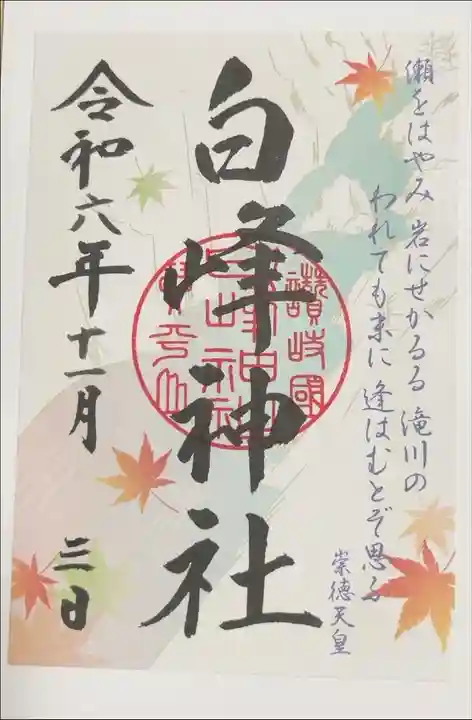 瀬をはやみ 岩にせかるる 滝川の
われても末に 逢はむとぞ思ふ
崇徳天皇
白峰神社
讃岐國
令和六年十一月
三日